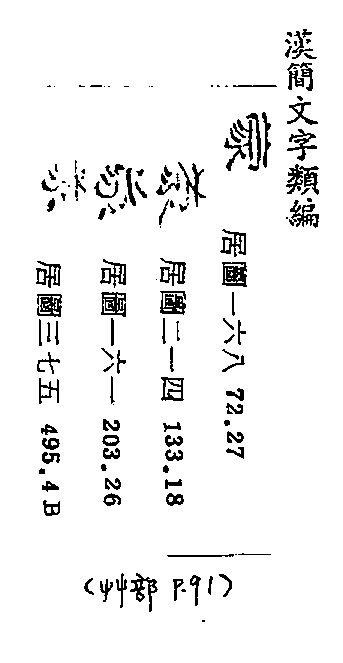 漢簡文字類編
蒙
居圖一六八 72.27
居圖二一四 133.18
居圖一六一 203.26
居圖三七五 495.4B
(艸部 P.91)